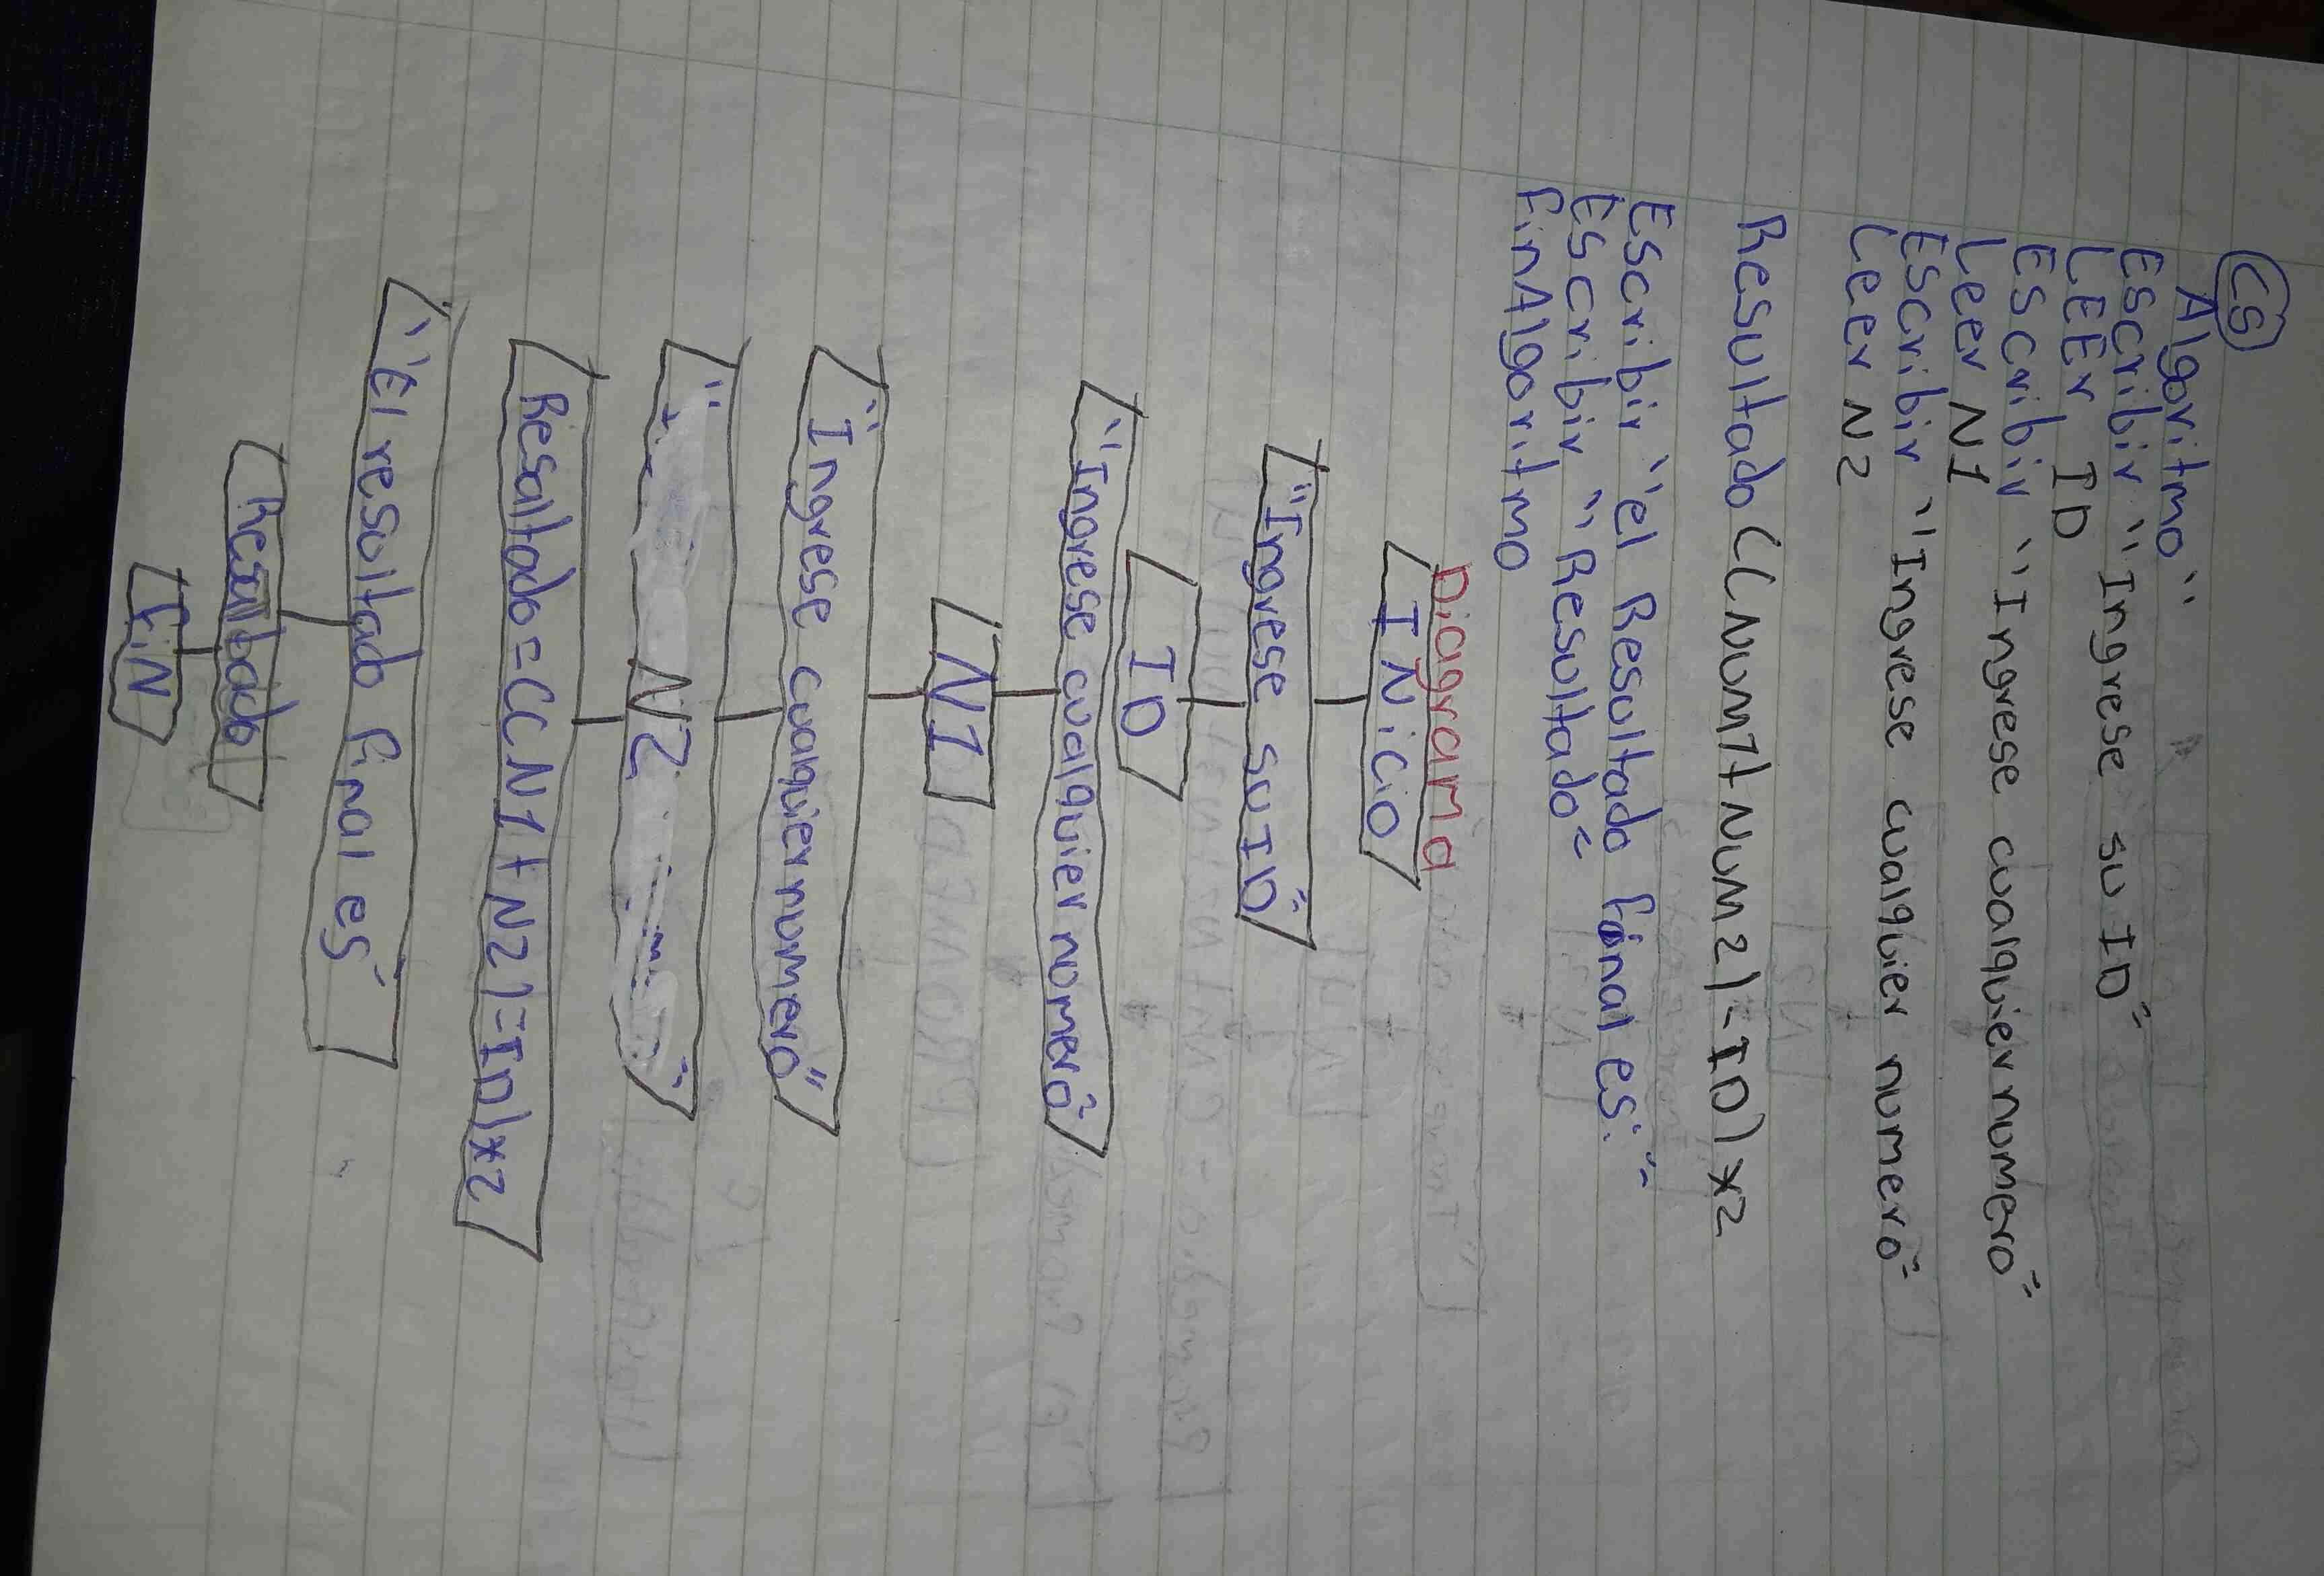 C5
Algoritmo"
Escribir "Ingrese su ID"
LEEr ID
Escribir "Ingrese cualquier numero"
Leer N1
Escribir "Ingrese cualquier numero"
Leer N2
Resultado ((Num1+Num2)-ID)*2
Escribir "el Resultado final es:"
Escribir "Resultado"
FinAlgoritmo
Diagrama
INiCiO
"Ingrese su ID"
ID
"Ingrese cualquier numero"
N1
"Ingrese cualquier numero"
" N2 "
Resultado=((N1+N2)-ID)*2
"El resultado final es"
Resultado
FiN